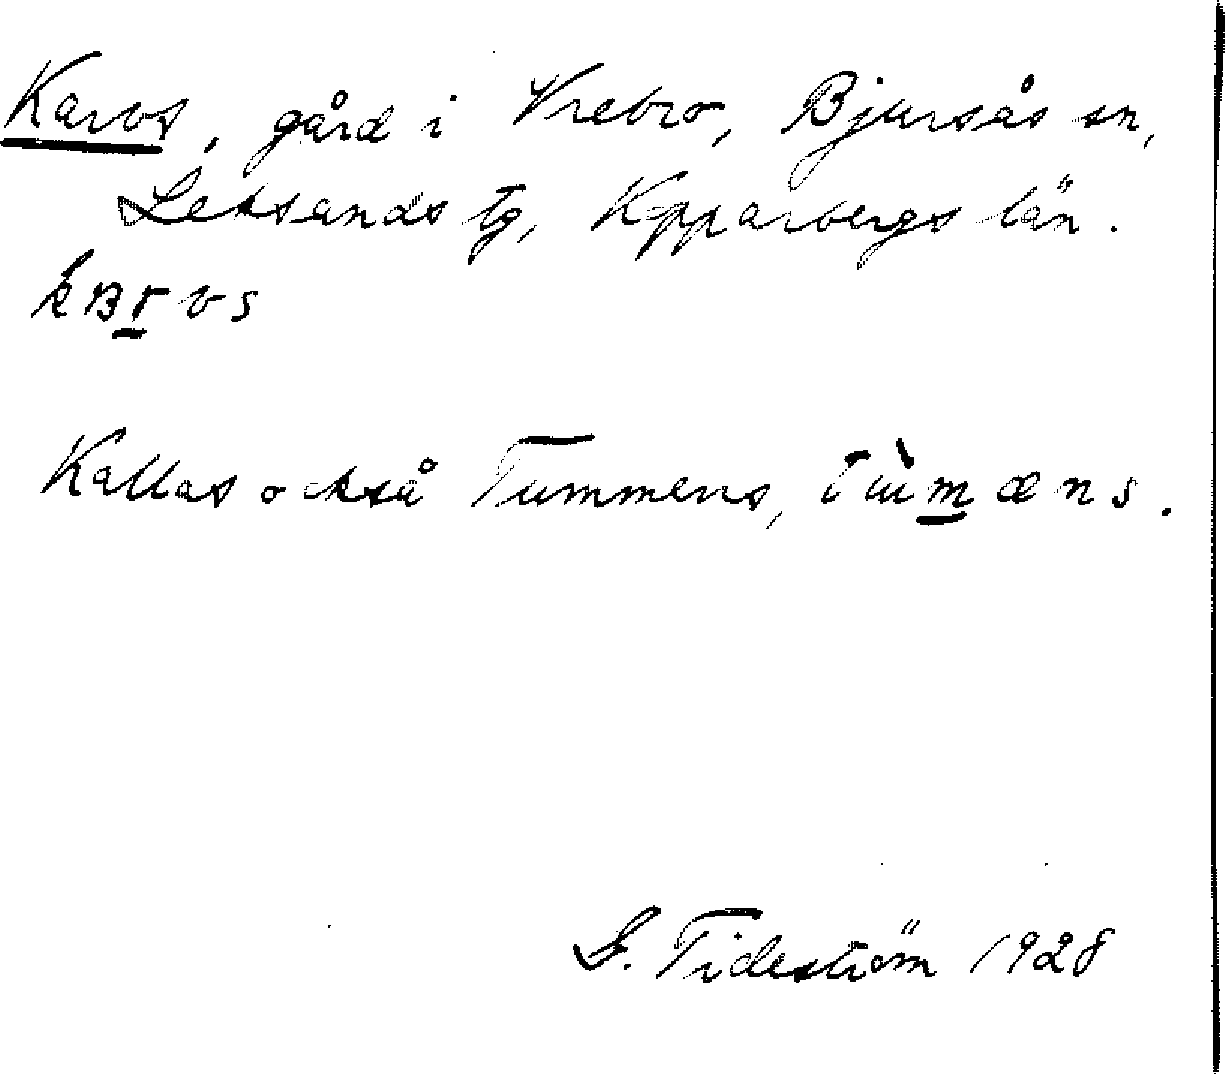 Karvs, gård i Vrebro, Bjursås sn,
Leksands tg, Kopparbergs län.
kɐrvs
Kallas också Tummens, tùmæns.
G. Tideström 1928